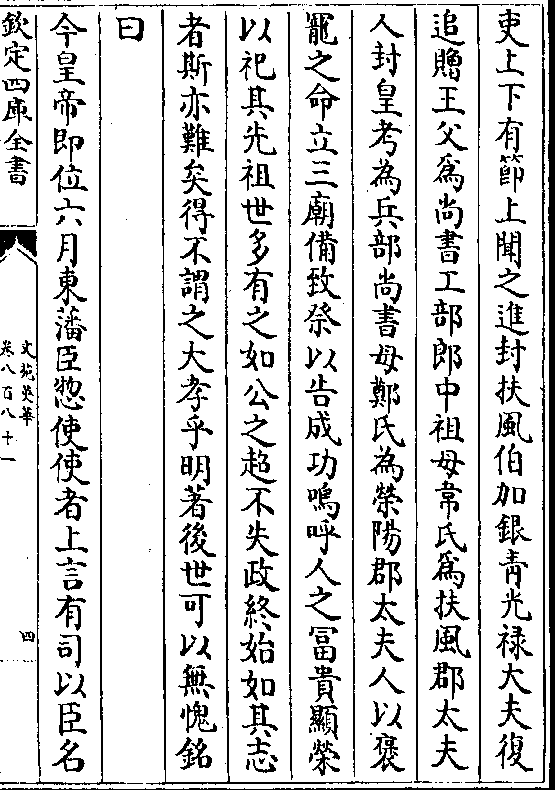 吏上下有節上聞之進封扶風伯加銀青光禄大夫復
追贈王父爲尚書工部郎中祖母韋氏爲扶風郡太夫
人封皇考為兵部尚書母鄭氏為滎陽郡太夫人以褒
寵之命立三廟備致祭以告成功嗚呼人之冨貴顯榮
以祀其先祖世多有之如公之超不失政終始如其志
者斯亦難矣得不謂之大孝乎明著後世可以無愧銘
曰
今皇帝即位六月東藩臣惣使使者上言有司以臣名
欽定四庫全書
文苑英華
卷八百八十一
四